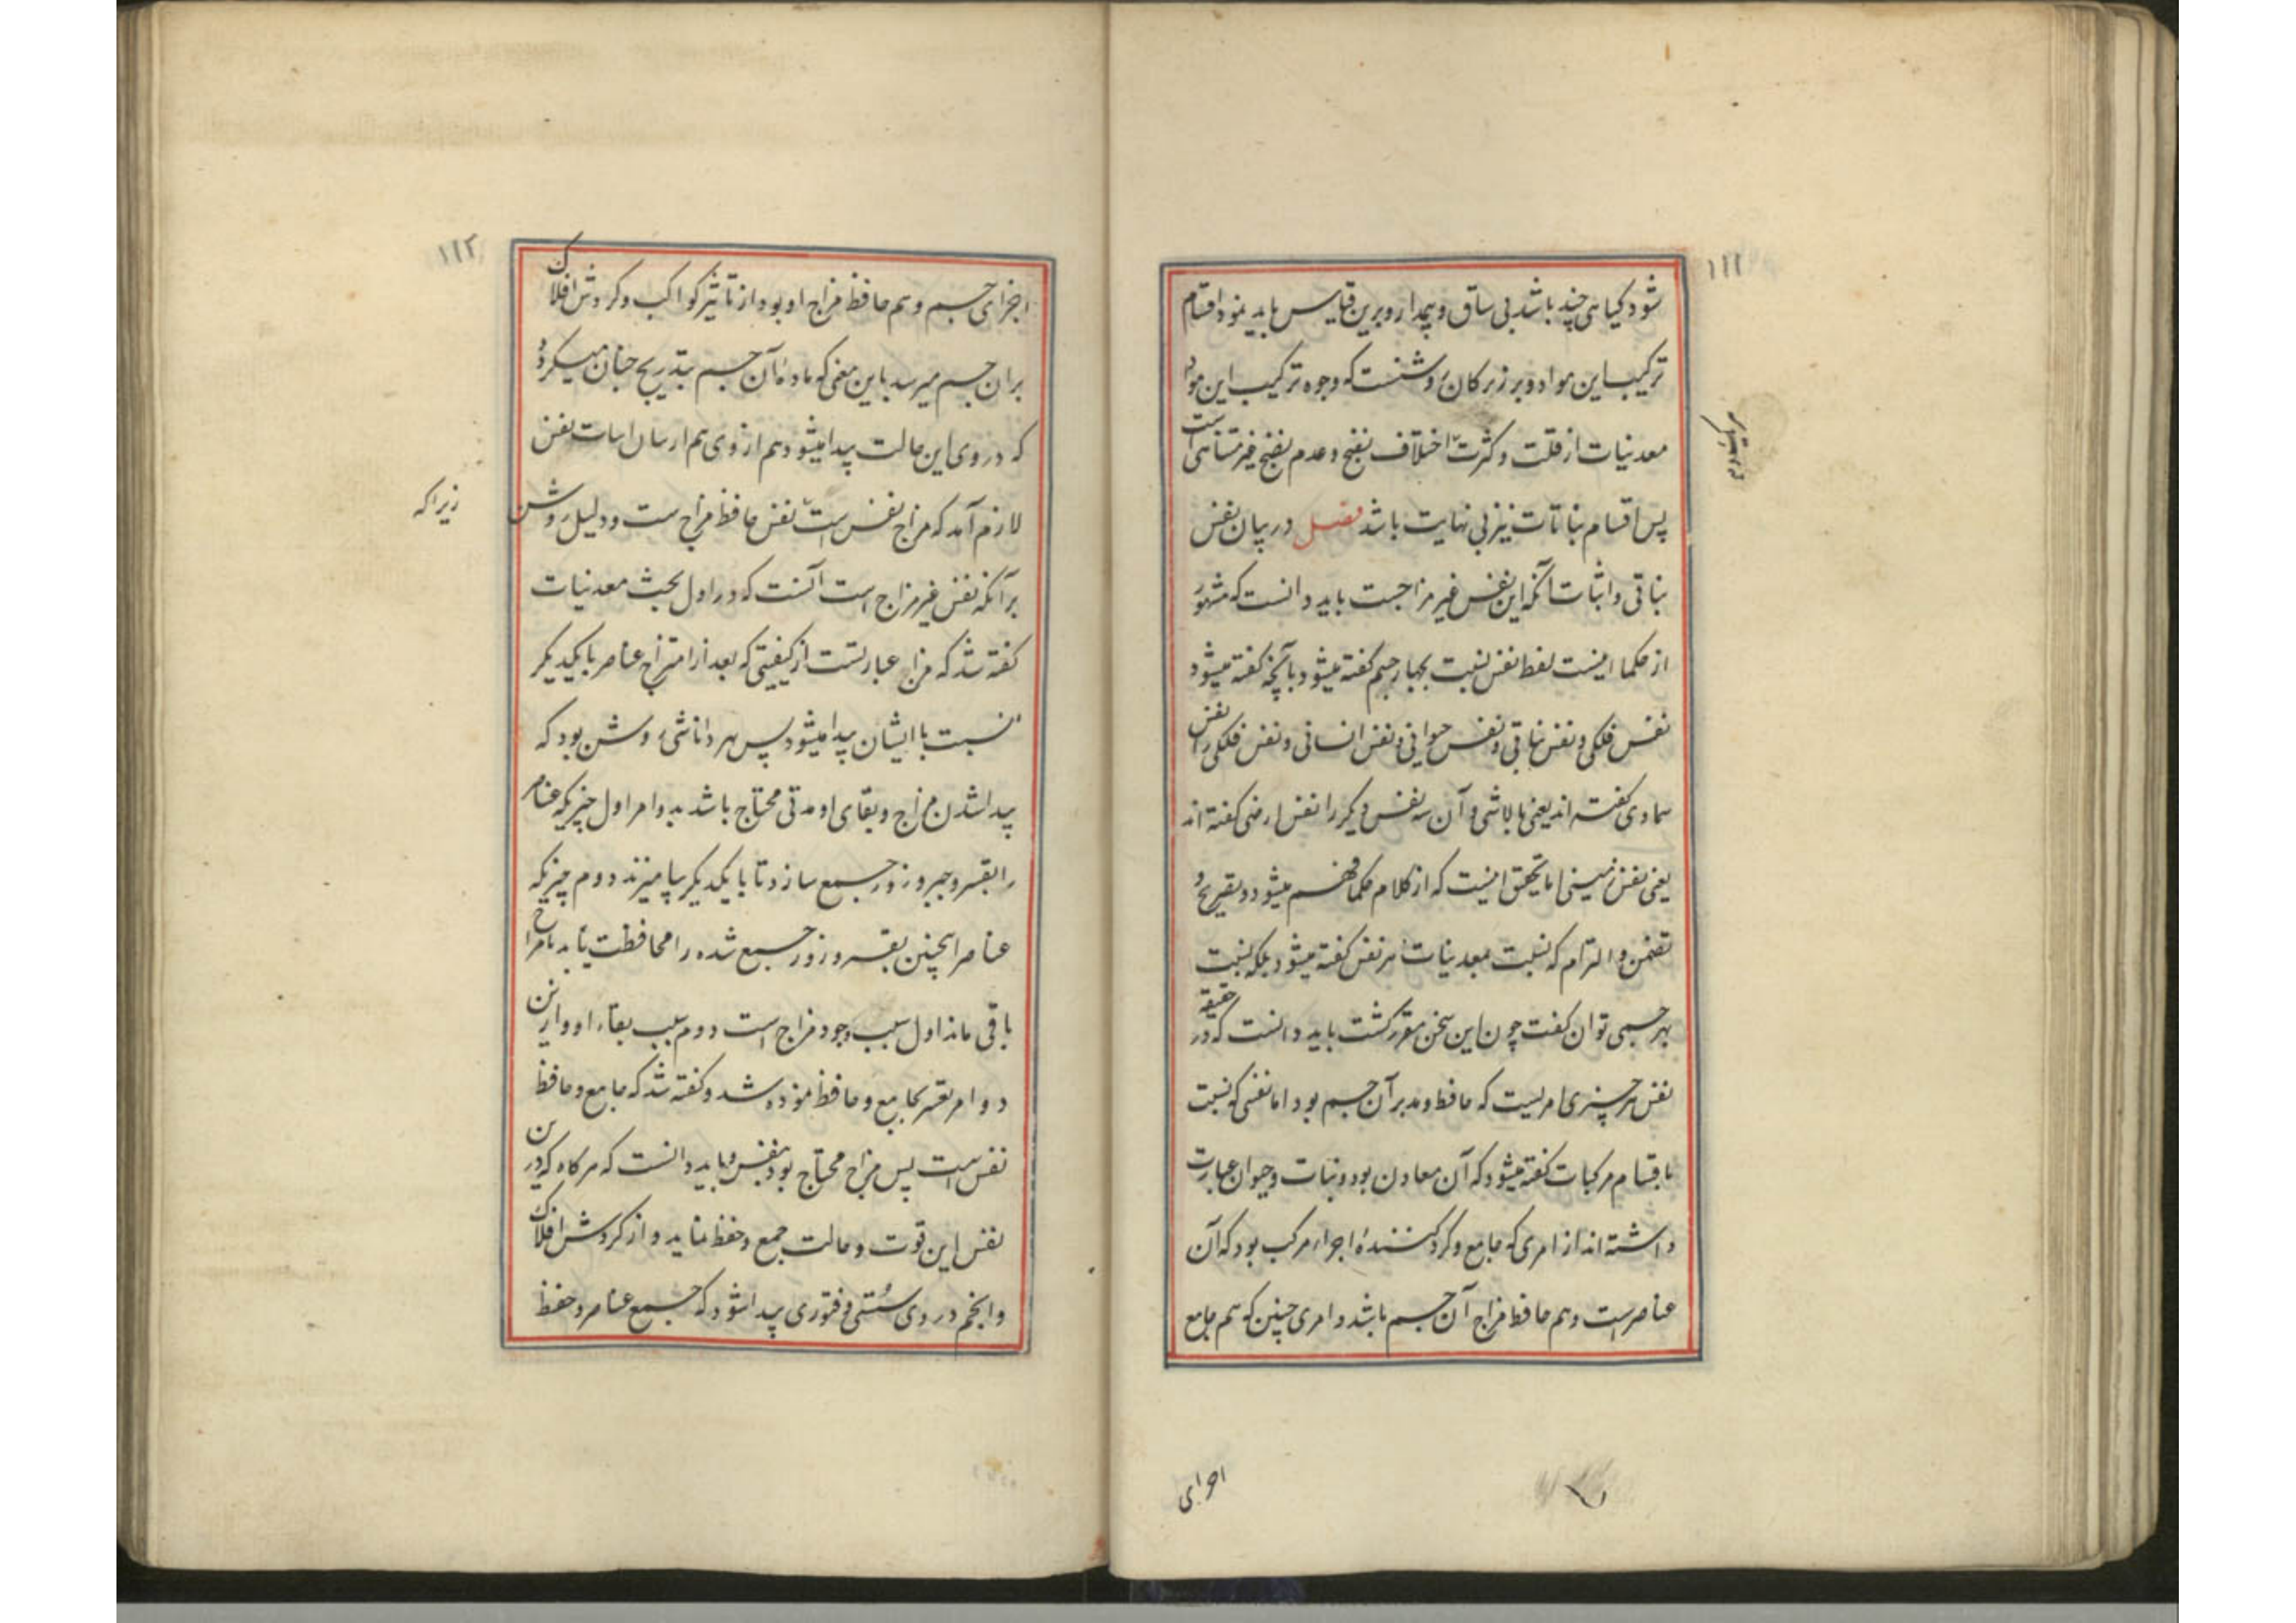 ۱۱۱
شود کیاهی چند باشد بی ساق و بیمدار و برین قیاس باید نمود اقسام
ترکیب این مواد و بر زیرکان روشنست که وجوه ترکیب این مواد
معدنیات از قلت و کثرت اختلاف نضج و عدم نضج غیر متناهی است
پس اقسام نباتات نیز بی نهایت باشد فصل در بیان نفس
نباتی و اثبات آنکه این نفس غیر مزاجست باید دانست که مشهور
از حکما اینست لفظ نفس نسبت بچهار جسم کفته میشود بآنچه کفته میشود
نفس فلکی و نفس نباتی و نفس حیوانی و نفس انسانی و نفس فلکی را نفس
سماوی کفته اند یعنی بالاشی و آن سه نفس دیکر را نفس ارضی کفته اند
یعنی نفس زمینی اما تحقیق اینست که از کلام حکما فهم میشود و بتصریح و
تضمن و التزام که نسبت بمعدنیات نیز نفس کفته میشود بلکه نسبت
بهر جسمی توان کفت چون این سخن مقرر کشت باید دانست که در حقیقة
نفس هر چیزی امریست که حافظ و مدبر آن جسم بود اما نفسی که نسبت
باقسام مرکبات کفته میشود که آن معادن بود و نبات و حیوان عبارت
داشته اند از امری که جامع و کرد کنندهٔ اجزاء مرکب بود که آن
عناصر است و هم حافظ مزاج آن جسم باشد و امری چنین که هم جامع
اجزای
۱۱۲
اجزای جسم و هم حافظ مزاج او بود از تاثیر کواکب و کردش افلاک
بران جسم میرسد باین معنی که مادهٔ آن جسم بتدریج چنان میکردد
که در وی این حالت پیدا میشود هم از وی هم نفس
لازم آمد که مزاج نفس است نفس حافظ مزاج است و دلیل روشن
زیرا که
بر آنکه نفس غیر مزاج است آنست که در اول بحث معدنیات
کفته شد که مزاج عبارتست از کیفیتی که بعد از امتزاج عناصر با یکدیکر
نسبت با ایشان پیدا میشود پس بهر دانائی روشن بود که
پیدا شدن مزاج و بقای او مدتی محتاج باشد بدو امر اول چیزیکه عناصر
را بقسر و جبر و زور جمع سازد تا با یکدیکر بیامیزند دوم چیزیکه
عناصر اینچنین بقسر و زور جمع شده را محافظت نماید تا مزاج
باقی ماند اول سبب وجود مزاج است دوم سبب بقاء او و ازین
دو امر تعبیر بجامع و حافظ نموده شد و کفته شد که جامع و حافظ
نفس است پس مزاج محتاج بود بنفس و باید دانست که هرکاه که درین
نفس این قوت و حالت جمع و حفظ نماید و از کردش افلاک
و انجم در وی سُستی و فتوری پیدا شود که جمع عناصر و حفظ